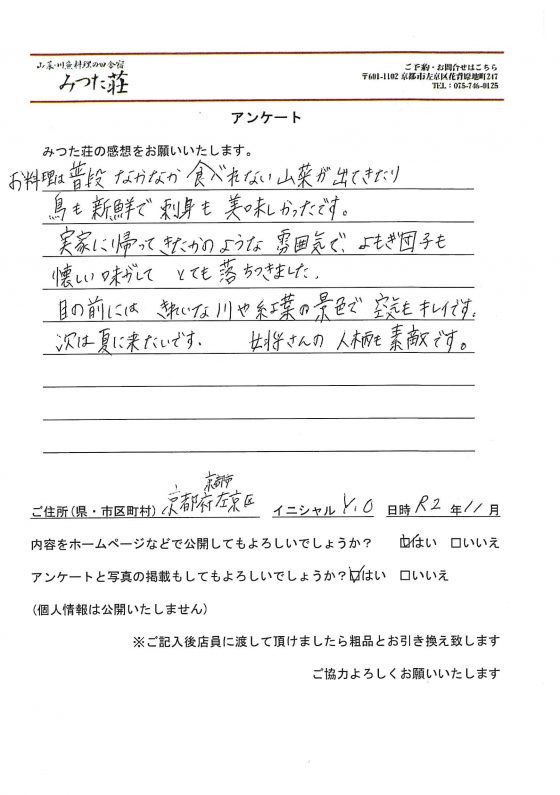 山菜・川魚料理の田舎宿
みつた荘
ご予約・お問合せはこちら
〒601-1102 京都市左京区花背原地町247
TEL：075-746-0125
アンケート
みつた荘の感想をお願いいたします。
お料理は普段 なかなか 食べれない 山菜が出てきたり
鳥も 新鮮で 刺身も 美味しかったです。
実家に帰ってきたかのような 雰囲気で、よもぎ団子も
懐しい味がして とても 落ちつきました.
目の前には きれいな川や紅葉の景色で 空気もキレイです.
次は夏に来たいです. 女将さんの 人柄も素敵です。
京都市
ご住所(県・市区町村) 京都府左京区 イニシャル Y.O 日時 R2 年 11 月
内容をホームページなどで公開してもよろしいでしょうか？ ☑はい □いいえ
アンケートと写真の掲載もしてもよろしいでしょうか？☑はい □いいえ
(個人情報は公開いたしません)
※ご記入後店員に渡して頂けましたら粗品とお引き換え致します
ご協力よろしくお願いいたします